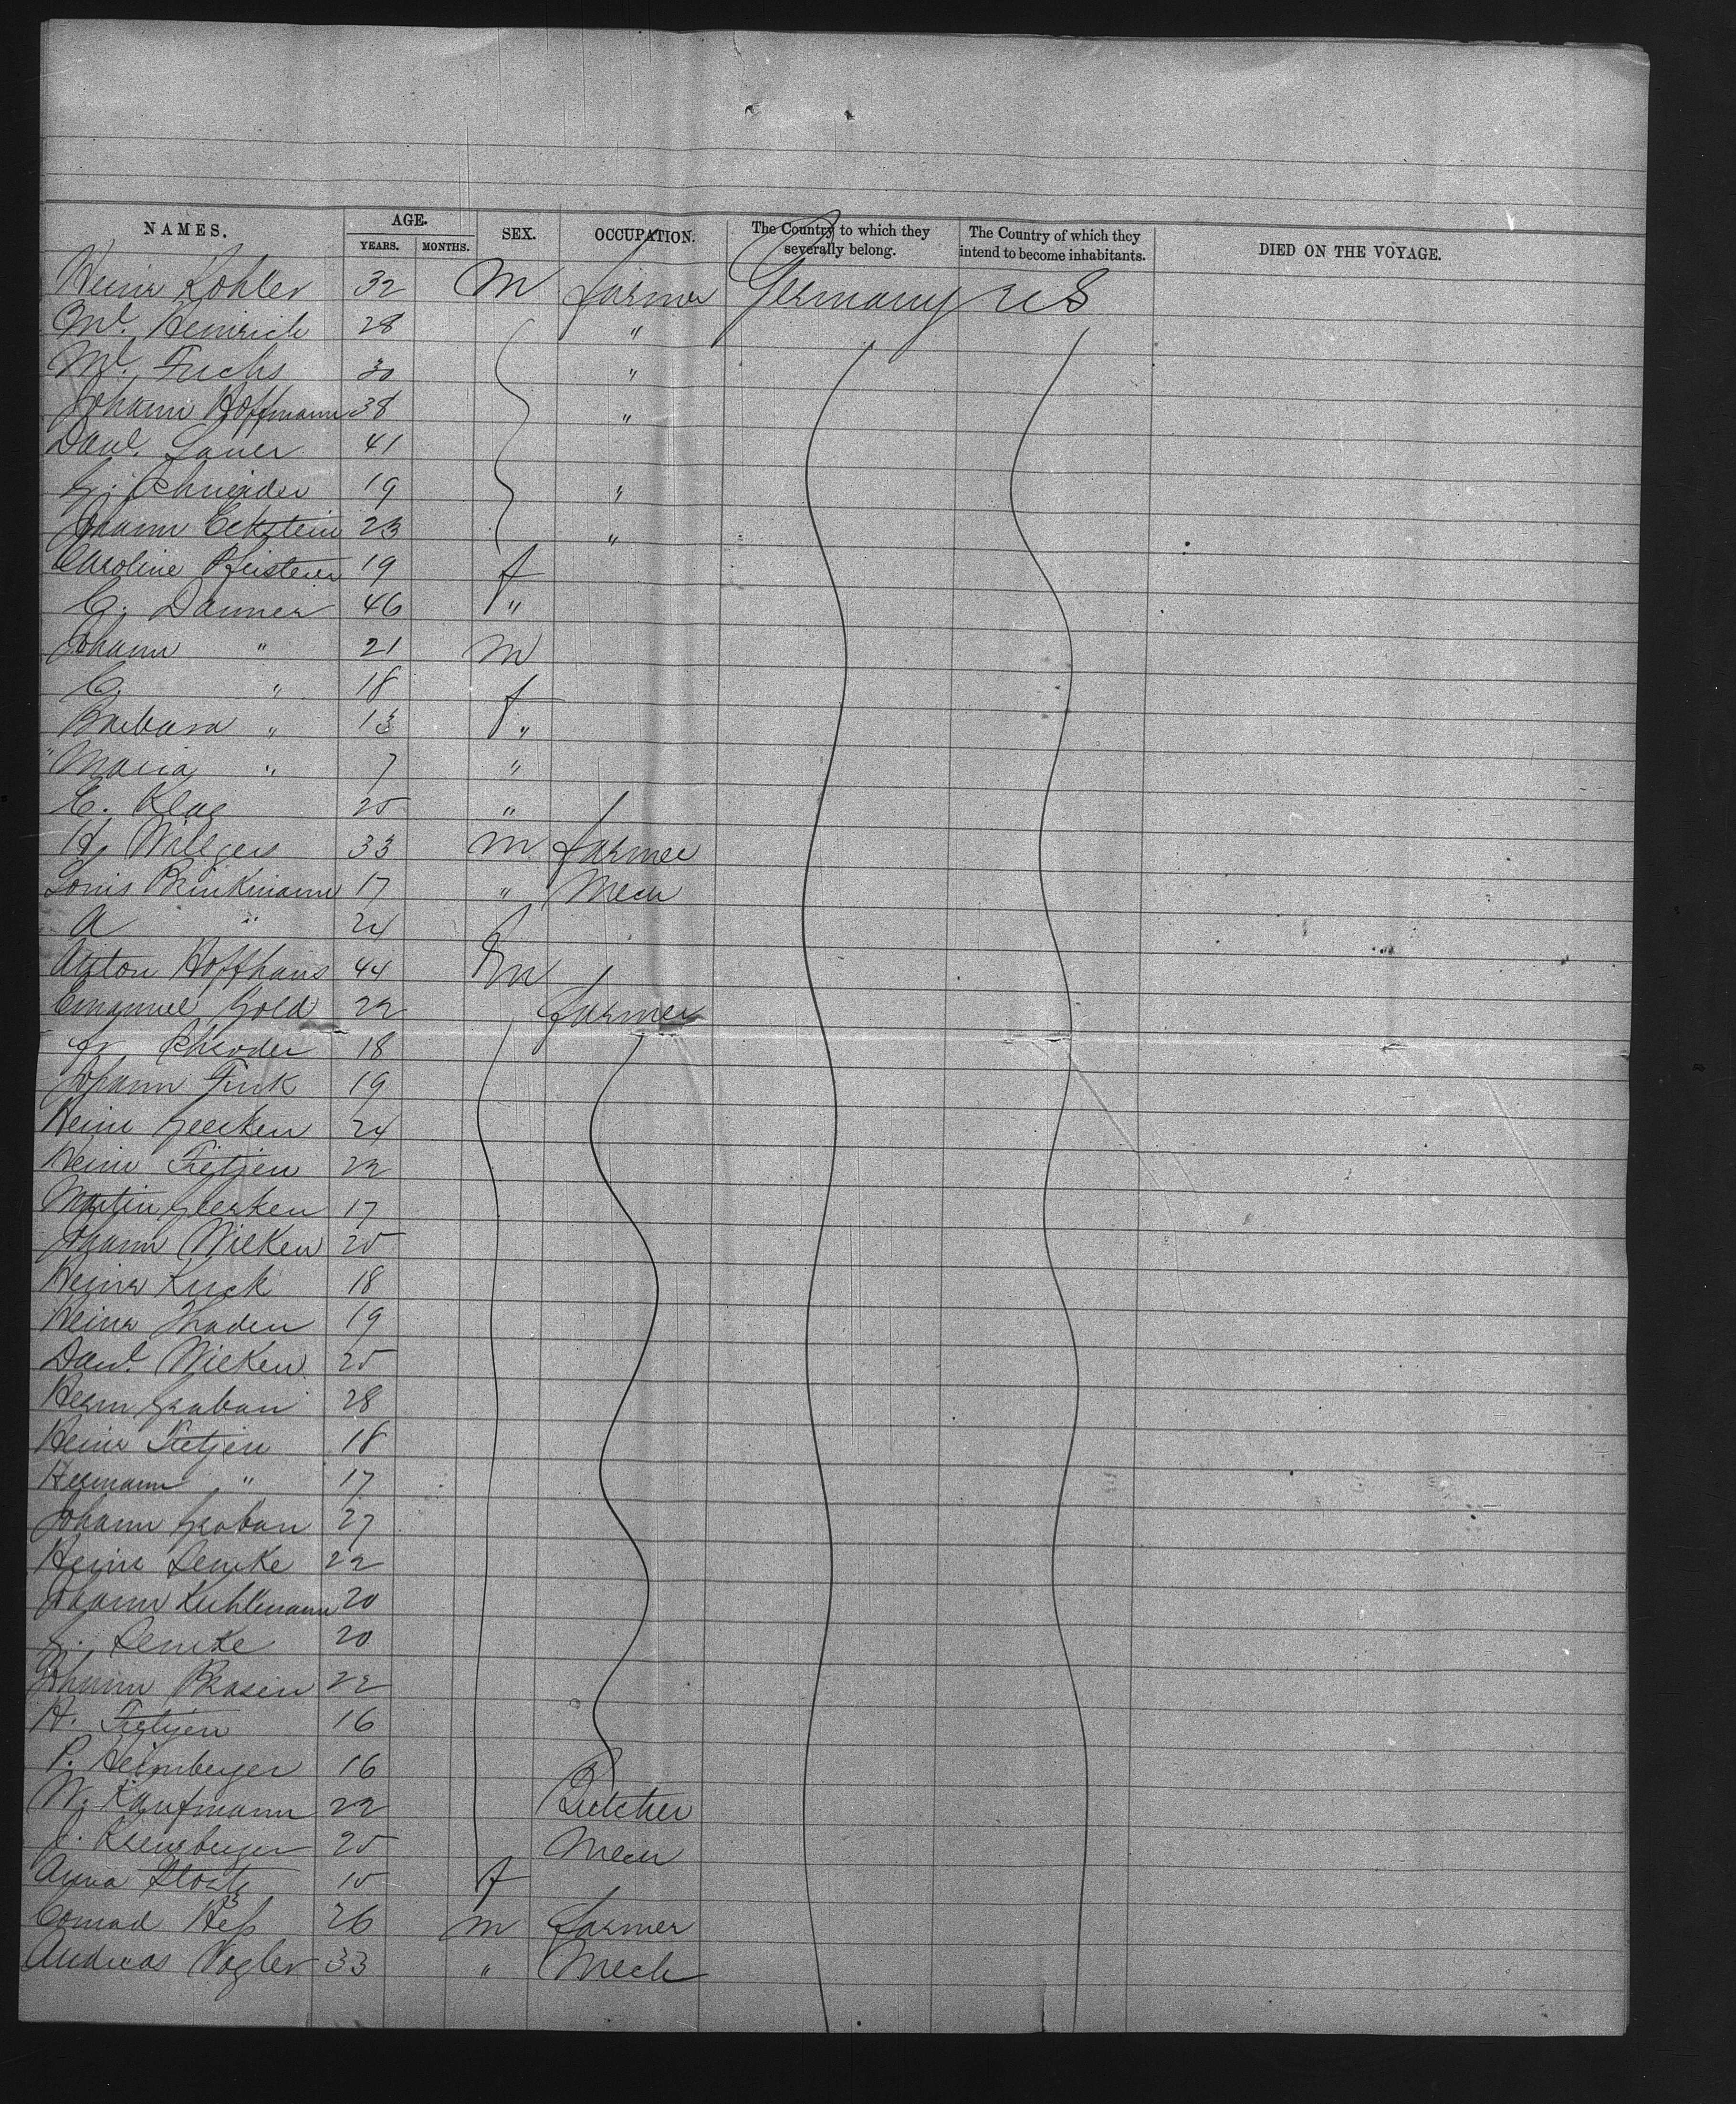 NAMES. AGE. YEARS. MONTHS. SEX. OCCUPATION. The Country to which they severally belong. The Country of which they intend to become inhabitants. DIED ON THE VOYAGE.
Heinr Kohler 32 M farmer Germany US
Ml. Heinrich 28 "
Ml. Fuchs 30 "
Johann Hoffmann 38 "
Danl. Lauer 41
G. Schneider 19 "
Johann Eckstein 23 "
Caroline Pfisterer 19 f
C. Danner 46 "
Johann " 21 M
C. " 18 f
Barbara " 13 "
" Maria " 7 "
C. Klag 25 "
H. Willgers 33 M farmer
Louis Brinkmann 17 " Mech
A " 24 f
Anton Hoffhaus 44 m
Emanuel Gold 22 farmer
Fr Schroder 18
Johann Fink 19
Heinr Geerken 24
Heinr Tietjen 22
Martin Geerken 17
Johann Wilken 25
Heinr Kuck 18
Heinr Thaden 19
Danl. Wilken 25
Herm Grabau 28
Heinr Tietjen 18
Hermann " 17
Johann Grabau 27
Heinr Lemke 22
Johann Kuhlmann 20
G. Lemke 20
Johann Brasen 22
H. Tietjen 16
P. Heimberger 16
W. Kaufmann 22 Butcher
J. 25 Mech
Anna 15 f
Conrad Heß 26 m farmer
Andreas Vogler 33 " Mech